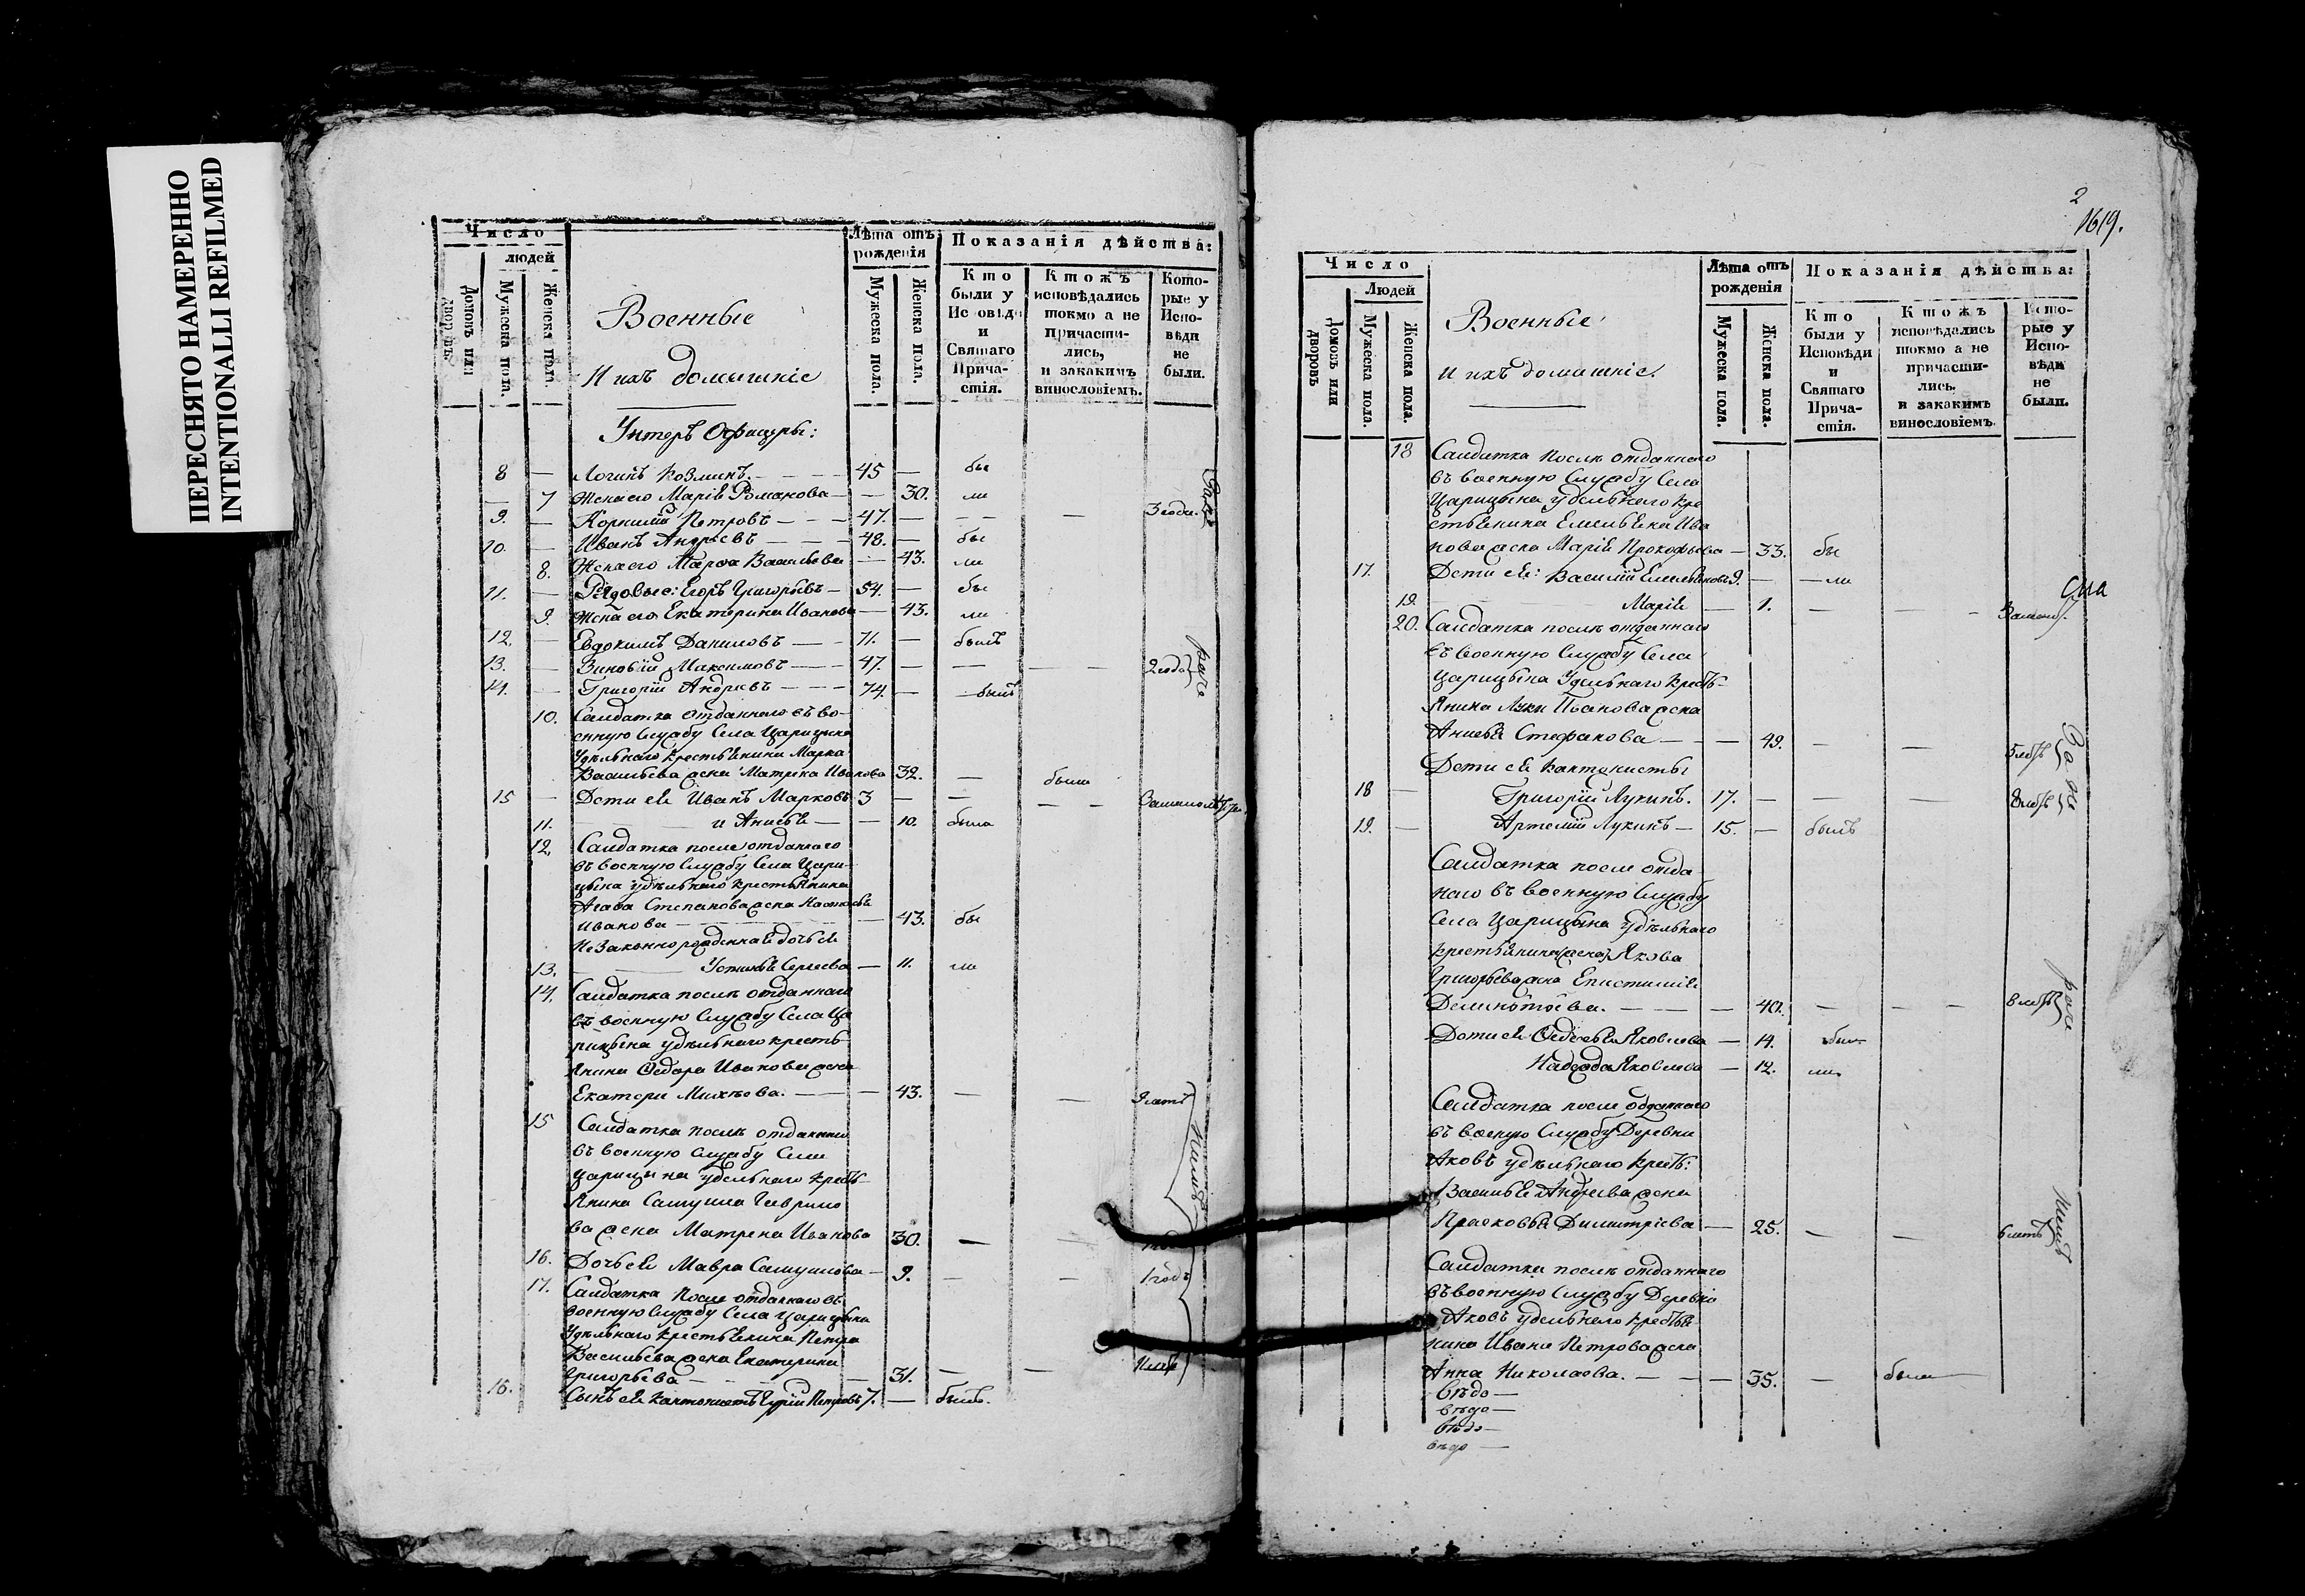 ПЕРЕСНЯТО НАМЕРЕННО
INTENTIONALLI REFILMED
Число
людей
Домовъ или дворовъ.
Мужеска пола.
Женска пола.
Военные
И ихъ домашніе
Лѣта отъ рожденія
Мужеска пола.
Женска пола.
Показанія дѣйства:
Кто были у Исповѣди и Святаго Причастія.
Ктожъ исповѣдались токмо а не причастились, и закакимъ винословіемъ.
Которые у Исповѣди не были.
Унтеръ Офицеры:
8 — Логинъ Козминъ. — 45 — бы
— 7 Жена его Марія Романова — — 30. ли
9. — Корнилій Петровъ — — — 47. — — — — 3 года.
10. — Иванъ Андреевъ — — — 48. — бы
8. Жена его Марфа Васильева — 43. ли
11. — Рядовые: Егоръ Григорьевъ — 54. — бы
9. Жена его Екатерина Иванова — 43. ли
12. — Евдокимъ Даниловъ — — 71. — былъ
13. — Зиновій Максимовъ — — — 47. — — — — 2 года
14. — Григорій Андреевъ — — — 74. — былъ
10. Салдатка отданнаго въ во-
енную Службу Села Царицына
Удѣльнаго крестьянина Марка
Васильева жена Матрена Иванова 32. — была
15 — Дети ея Иванъ Марковъ 3 — — — —
11. и Анисья — — 10. была
12. Салдатка после отданнаго
въ военную Службу Села Цари-
цына удѣльнаго крестьянина
Степанова жена Настасья
Иванова — — 43. бы
Незаконнорожденная дочь ея
13. Устинья Сергеева — 11. ли
14. Салдатка послѣ отданнаго
въ военную Службу Села Ца
рицына удѣльнаго кресть
янина Федора Иванова жена
Екатери Михѣева. — — — 43. — — 9 летъ
15 Салдатка послѣ отданнаго
въ военную Службу Села
Царицына удельнаго кресть
янина Самуила Гаврило
ва жена Матрена Иванова 30. — —
16. Дочь ея Мавра Самуилова — 9. — — 1 годъ
17. Салдатка После отданнаго въ
военную Службу Села Царицына
Удѣльнаго крестьянина Петра
Васильева жена Екатерина
Григорьева — — 31. — —
16. Сынъ ея кантонистъ Петровъ 7. — былъ.
2
1619.
Число
Людей
Домовъ или дворовъ
Мужеска пола.
Женска пола.
Военные
и ихъ домашніе.
Лѣта отъ рожденія
Мужеска пола.
Женска пола.
Показанія дѣйства:
Кто были у Исповѣди и Святаго Причастія.
Ктожъ исповѣдались токмо а не причастились. и закакимъ винословіемъ.
Которые у Исповѣди не были.
18 Салдатка послѣ отданнаго
въ военную Службу Села
Царицына удельнаго кре
стьянина Емельяна Ива
нова жена Марія Прокофьева — 33. бы
17. Дети ея: Василій Емельяновъ 9. — — ли
19. Марія — 1. — — —
20. Салдатка послѣ отданнаго
въ военную Службу Села
Царицына Удельнаго кресть-
янина Луки Иванова жена
Анисья Стефанова — — — 49. — — 5 летъ
Дети ея кантонисты
18 — Григорій Лукинъ. 17. — —
19. — Артемій Лукинъ — 15. — былъ
Салдатка после отда
наго въ военную Службу
Села Царицына удѣльнаго
крестьянина Якова
Григорьева жена Епистимія
Дементьева. — — — 40. — — — 8 летъ
Дети ея Федосья Яковлева — 14. бы
Надежда Яковлева — 12. ли
Салдатка после отданнаго
въ военую Службу Деревни
Аковъ удѣльнаго кресть:
Василья Андреева жена
Прасковья Димитріева — 25. — — 6 летъ
Салдатка послѣ отданнаго
въ военную Службу Деревни
Аковъ удельнаго крестья
нина Ивана Петрова жена
Анна Николаева. — — — 35. — была